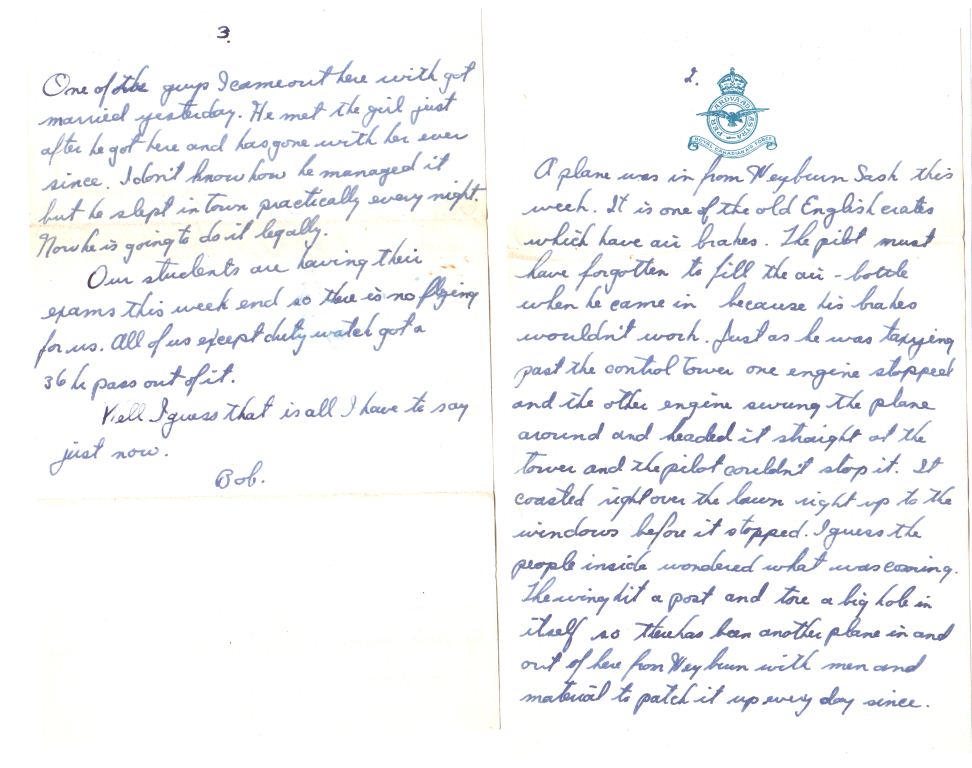 2.
PER ARDVA AD ASTRA
ROYAL CANADIAN AIR FORCE
A plane was in from Weyburn Sask this
week. It is one of the old English crates
which have air brakes. The pilot must
have forgotten to fill the air-bottle
when he came in because his brakes
wouldn't work. Just as he was taxying
past the control tower one engine stopped
and the other engine swung the plane
around and headed it straight at the
tower and the pilot couldn't stop it. It
coasted right over the lawn right up to the
windows before it stopped. I guess the
people inside wondered what was coming.
The wing hit a post and tore a big hole in
itself so there has been another plane in and
out of here from Weyburn with men and
material to patch it up every day since.
3.
One of the guys I came out here with got
married yesterday. He met the girl just
after he got here and has gone with her ever
since. I don't know how he managed it
but he slept in town practically every night.
Now he is going to do it legally.
Our students are having their
exams this week end so there is no flying
for us. All of us except duty watch got a
36 hr pass out of it.
Well I guess that is all I have to say
just now.
Bob.